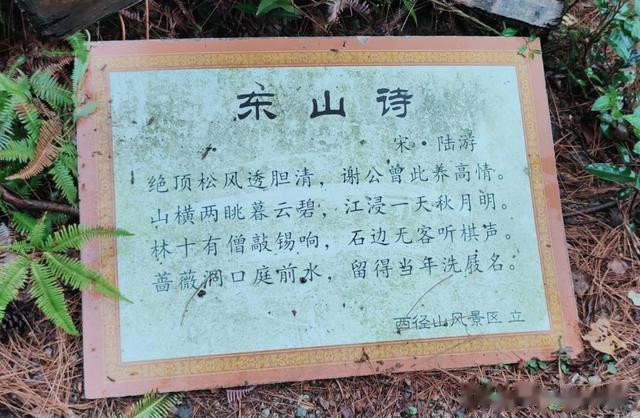 东山诗
宋·陆游
绝顶松风透胆清，谢公曾此养高情。
山横两眺暮云碧，江浸一天秋月明。
林十有僧敲锡响，石边无客听棋声。
蔷薇洞口庭前水，留得当年洗屐名。
西径山风景区 立